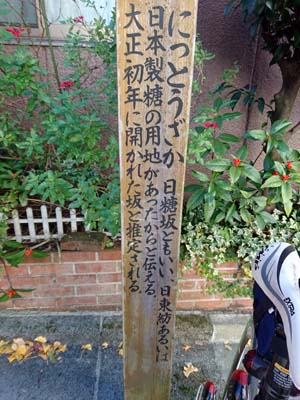 にっとうざか 日糖坂ともいい、日東紡あるいは
日本製糖の用地があったからと伝える。
大正初年に開かれた坂と推定される。